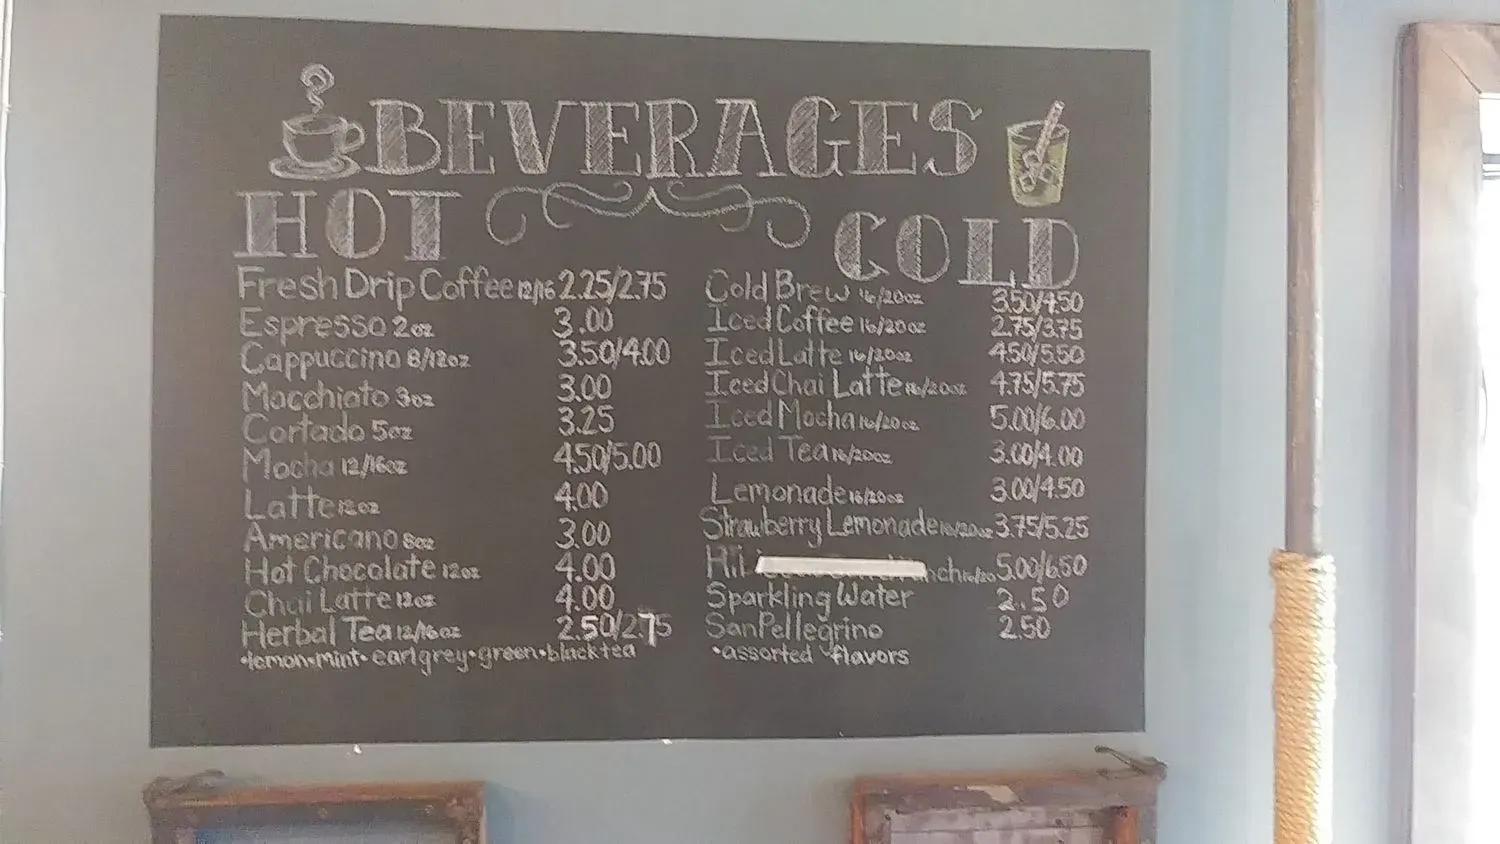 BEVERAGES
HOT
Fresh Drip Coffee 12/16 2.25/2.75
Espresso 2oz 3.00
Cappuccino 8/12oz 3.50/4.00
Macchiato 3oz 3.00
Cortado 5oz 3.25
Mocha 12/16oz 4.50/5.00
Latte 12oz 4.00
Americano 8oz 3.00
Hot Chocolate 12oz 4.00
Chai Latte 12oz 4.00
Herbal Tea 12/16oz 2.50/2.75
•lemon•mint•earl grey•green•black tea
COLD
Cold Brew 16/20oz 3.50/4.50
Iced Coffee 16/20oz 2.75/3.75
Iced Latte 16/20oz 4.50/5.50
Iced Chai Latte 16/20oz 4.75/5.75
Iced Mocha 16/20oz 5.00/6.00
Iced Tea 16/20oz 3.00/4.00
Lemonade 16/20oz 3.00/4.50
Strawberry Lemonade 16/20oz 3.75/5.25
16/20 5.00/6.50
Sparkling Water 2.50
SanPellegrino 2.50
•assorted flavors